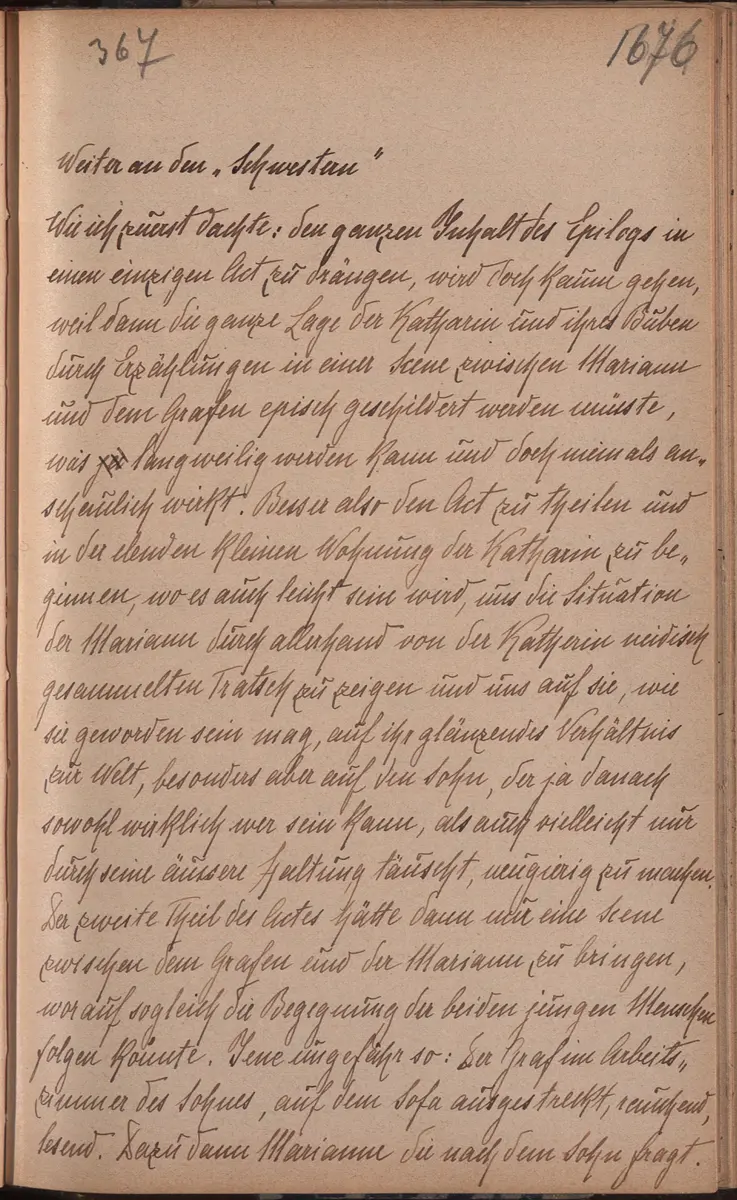 367
1676
Weiter an den „Schwestern"
Wie ich zuerst dachte: den ganzen Inhalt des Epilogs in
einen einzigen Act zu drängen, wird doch kaum gehen,
weil dann die ganze Lage der Katharin und ihres Buben
durch Erzählungen in einer Scene zwischen Mariann
und dem Grafen episch geschildert werden müsste,
was langweilig werden kann und doch niemals an„
schaulich wirkt. Besser also den Act zu theilen und
in der elenden kleinen Wohnung der Katharin zu be„
ginnen, wo es auch leicht sein wird, uns die Situation
der Mariann durch allerhand von der Katherin neidisch
gesammelten Tratsch zu zeigen und uns auf sie, wie
sie geworden sein mag, auf ihr glänzendes Verhältnis
zur Welt, besonders aber auf den Sohn, der ja danach
sowohl wirklich wer sein kann, als auch vielleicht nur
durch seine äussere Haltung täuscht, neugierig zu machen.
Der zweite Theil des Actes hätte dann nur eine Scene
zwischen dem Grafen und der Mariann zu bringen,
worauf sogleich die Begegnung der beiden jungen Menschen
folgen könnte. Jene ungefähr so: Der Graf im Arbeits„
zimmer des Sohnes, auf dem Sofa ausgestreckt, rauchend,
lesend. Dazu dann Marianne die nach dem Sohn fragt.